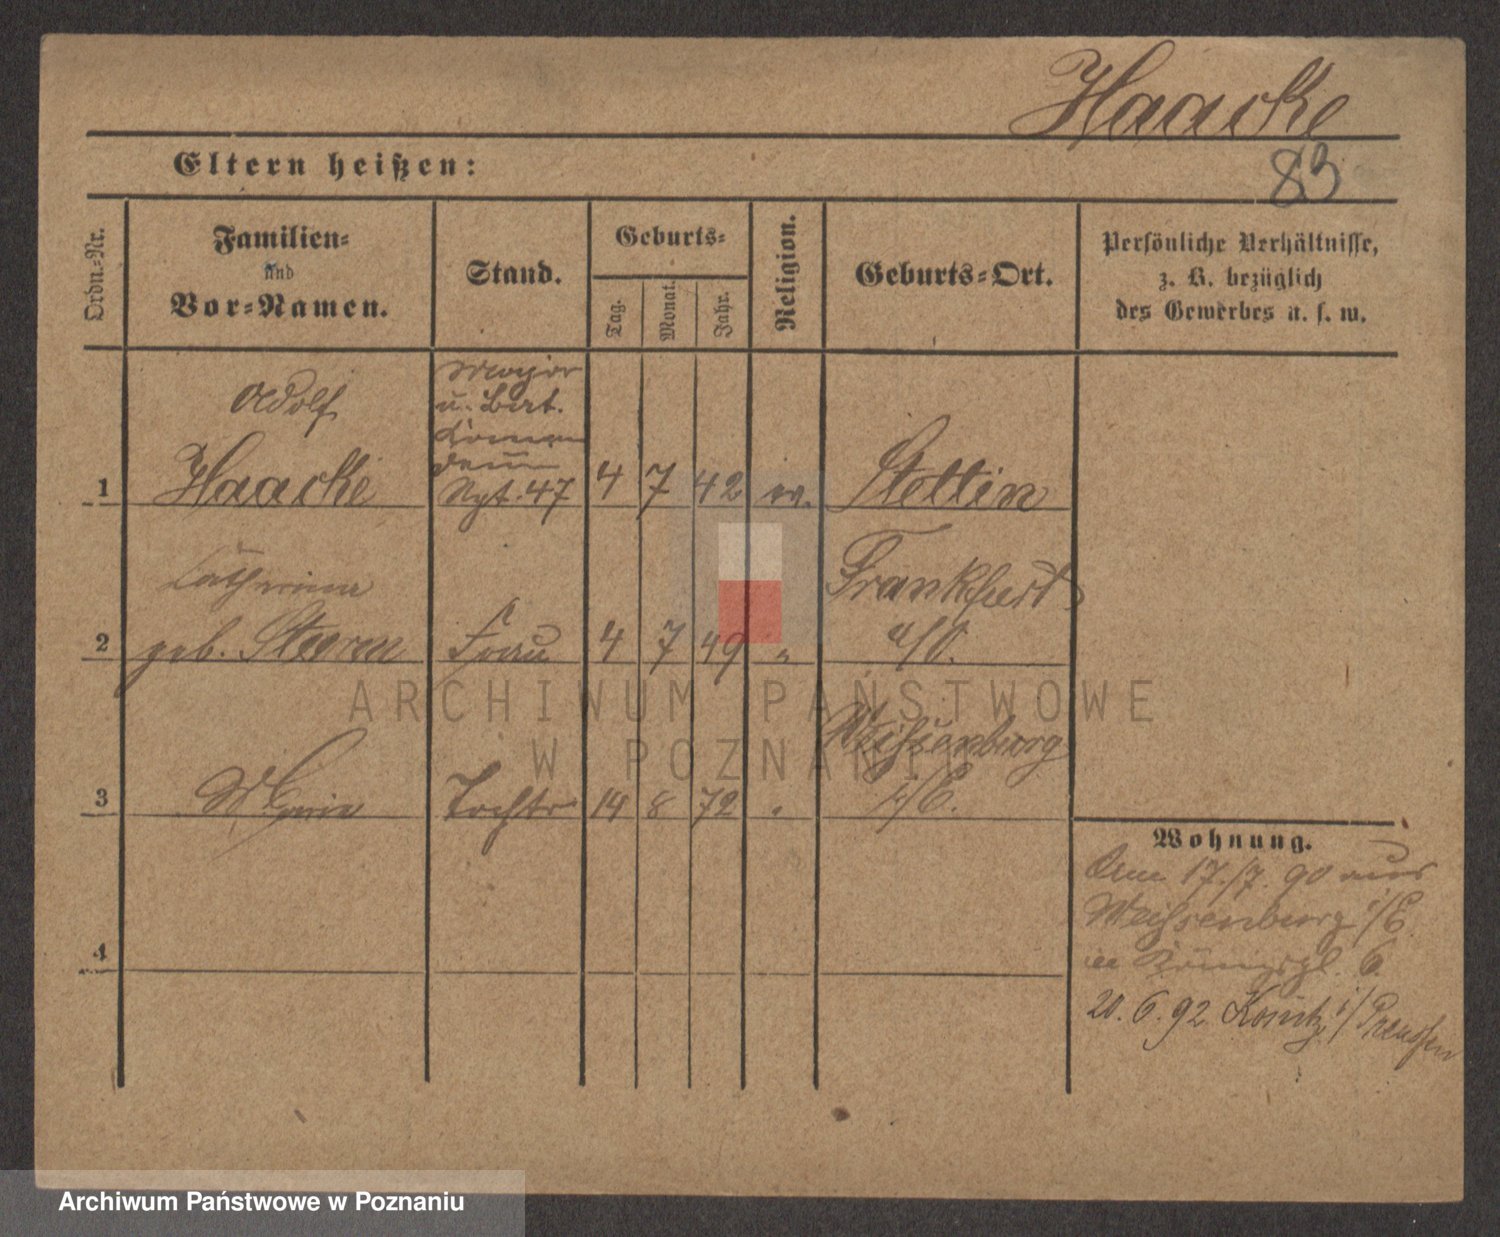 Haacke
Eltern heißen:
83
Ordn.-Nr.
Familien-
und
Vor-Namen.
Stand.
Geburts-
Tag.
Monat.
Jahr.
Religion.
Geburts-Ort.
Persönliche Verhältnisse,
z. B. bezüglich
des Gewerbes u. s. w.
Adolf
Major
u. Bat.
Comman
deur
1 Haacke Rgt. 47 4 7 42 ev. Stettin
Catherine
Frankfurt
2 geb. Frau 4 7 49 " a/O.
Weißenburg
3 Marie Tochter 14 8 72 " i/E.
Wohnung.
Am 17./7. 90 aus
Weißenburg i/E
4
in Königspl. 6.
20. 6. 92 Konitz i/Preußen
ARCHIWUM PAŃSTWOWE
W POZNANIU
Archiwum Państwowe w Poznaniu